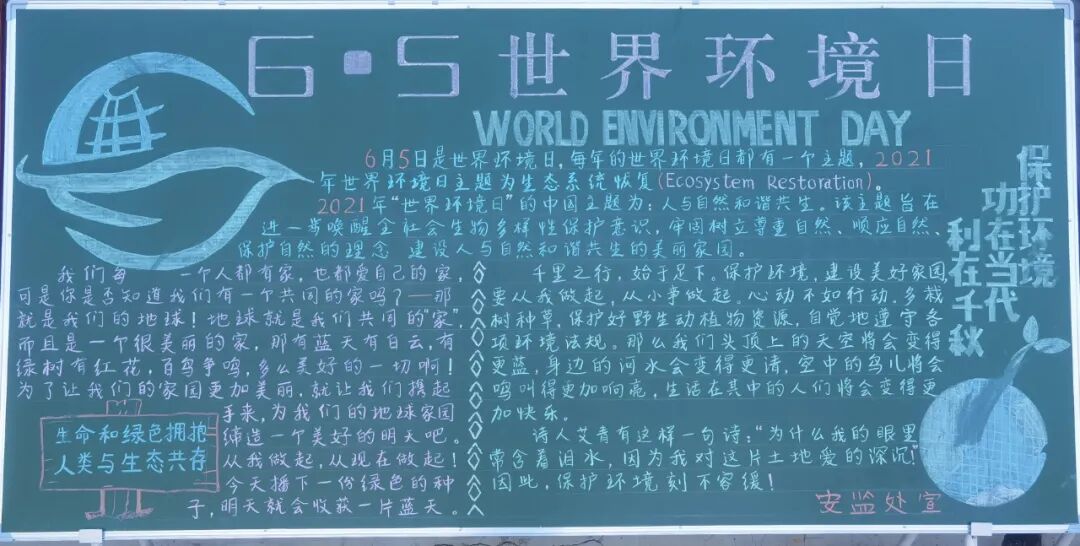 6·5世界环境日
WORLD ENVIRONMENT DAY
6月5日是世界环境日，每年的世界环境日都有一个主题，2021
年世界环境日主题为生态系统恢复(Ecosystem Restoration)。
2021年“世界环境日”的中国主题为：人与自然和谐共生。该主题旨在
进一步唤醒全社会生物多样性保护意识，牢固树立尊重自然、顺应自然、
保护自然的理念 建设人与自然和谐共生的美丽家园。
保护环境
功在当代
利在千秋
我们每 一个人都有家，也都爱自己的家，
可是你是否知道我们有一个共同的家吗？—那
就是我们的地球！地球就是我们共同的“家”，
而且是一个很美丽的家，那有蓝天有白云，有
绿树有红花，百鸟争鸣，多么美好的一切啊！
为了让我们的家园更加美丽，就让我们携起
手来，为我们的地球家园
缔造一个美好的明天吧。
从我做起，从现在做起！
今天播下一份绿色的种
子，明天就会收获一片蓝天。
生命和绿色拥抱
人类与生态共存
千里之行，始于足下。保护环境，建设美好家园，
要从我做起，从小事做起。心动不如行动，多栽
树种草，保护好野生动植物资源，自觉地遵守各
项环境法规。那么我们头顶上的天空将会变得
更蓝，身边的河水会变得更清，空中的鸟儿将会
鸣叫得更加响亮，生活在其中的人们将会变得更
加快乐。
诗人艾青有这样一句诗：“为什么我的眼里
常含着泪水，因为我对这片土地爱的深沉！”
因此，保护环境刻不容缓！
安监处宣